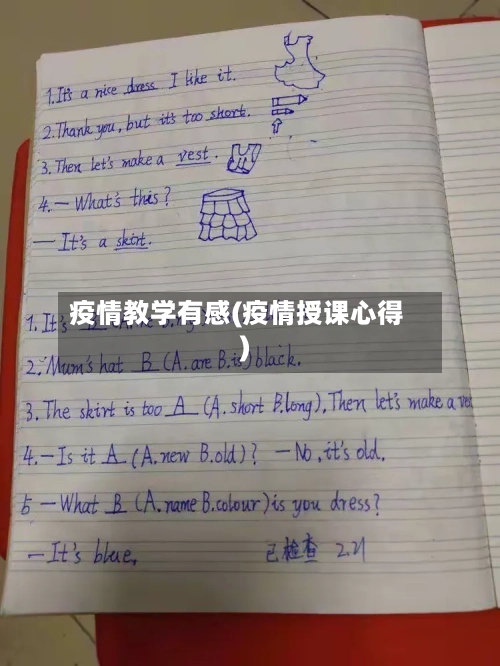 1. It's a nice dress. I like it.
2. Thank you, but it's too short.
3. Then let's make a vest.
4. — What's this?
— It's a skirt.
1. It's
疫情教学有感(疫情授课心得
)
2. Mum's hat B (A. are B. is) black.
3. The skirt is too A (A. short B. long), Then let's make a ve
4. — Is it A (A. new B. old)? — No, it's old.
5 — What B (A. name B. colour) is you dress?
— It's blue.
已检查 2.21